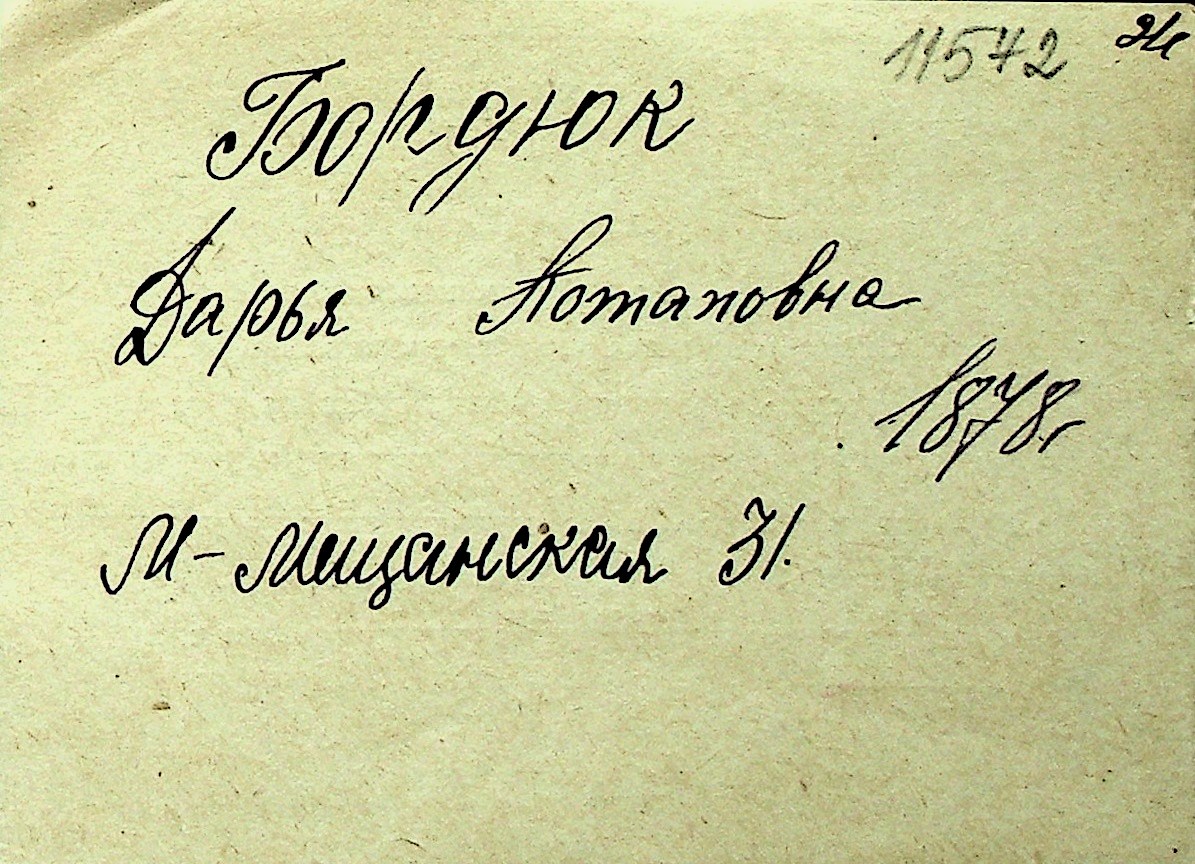 11572
Бордюк
Дарья Потаповна
1878г
М-Мещанская 31.